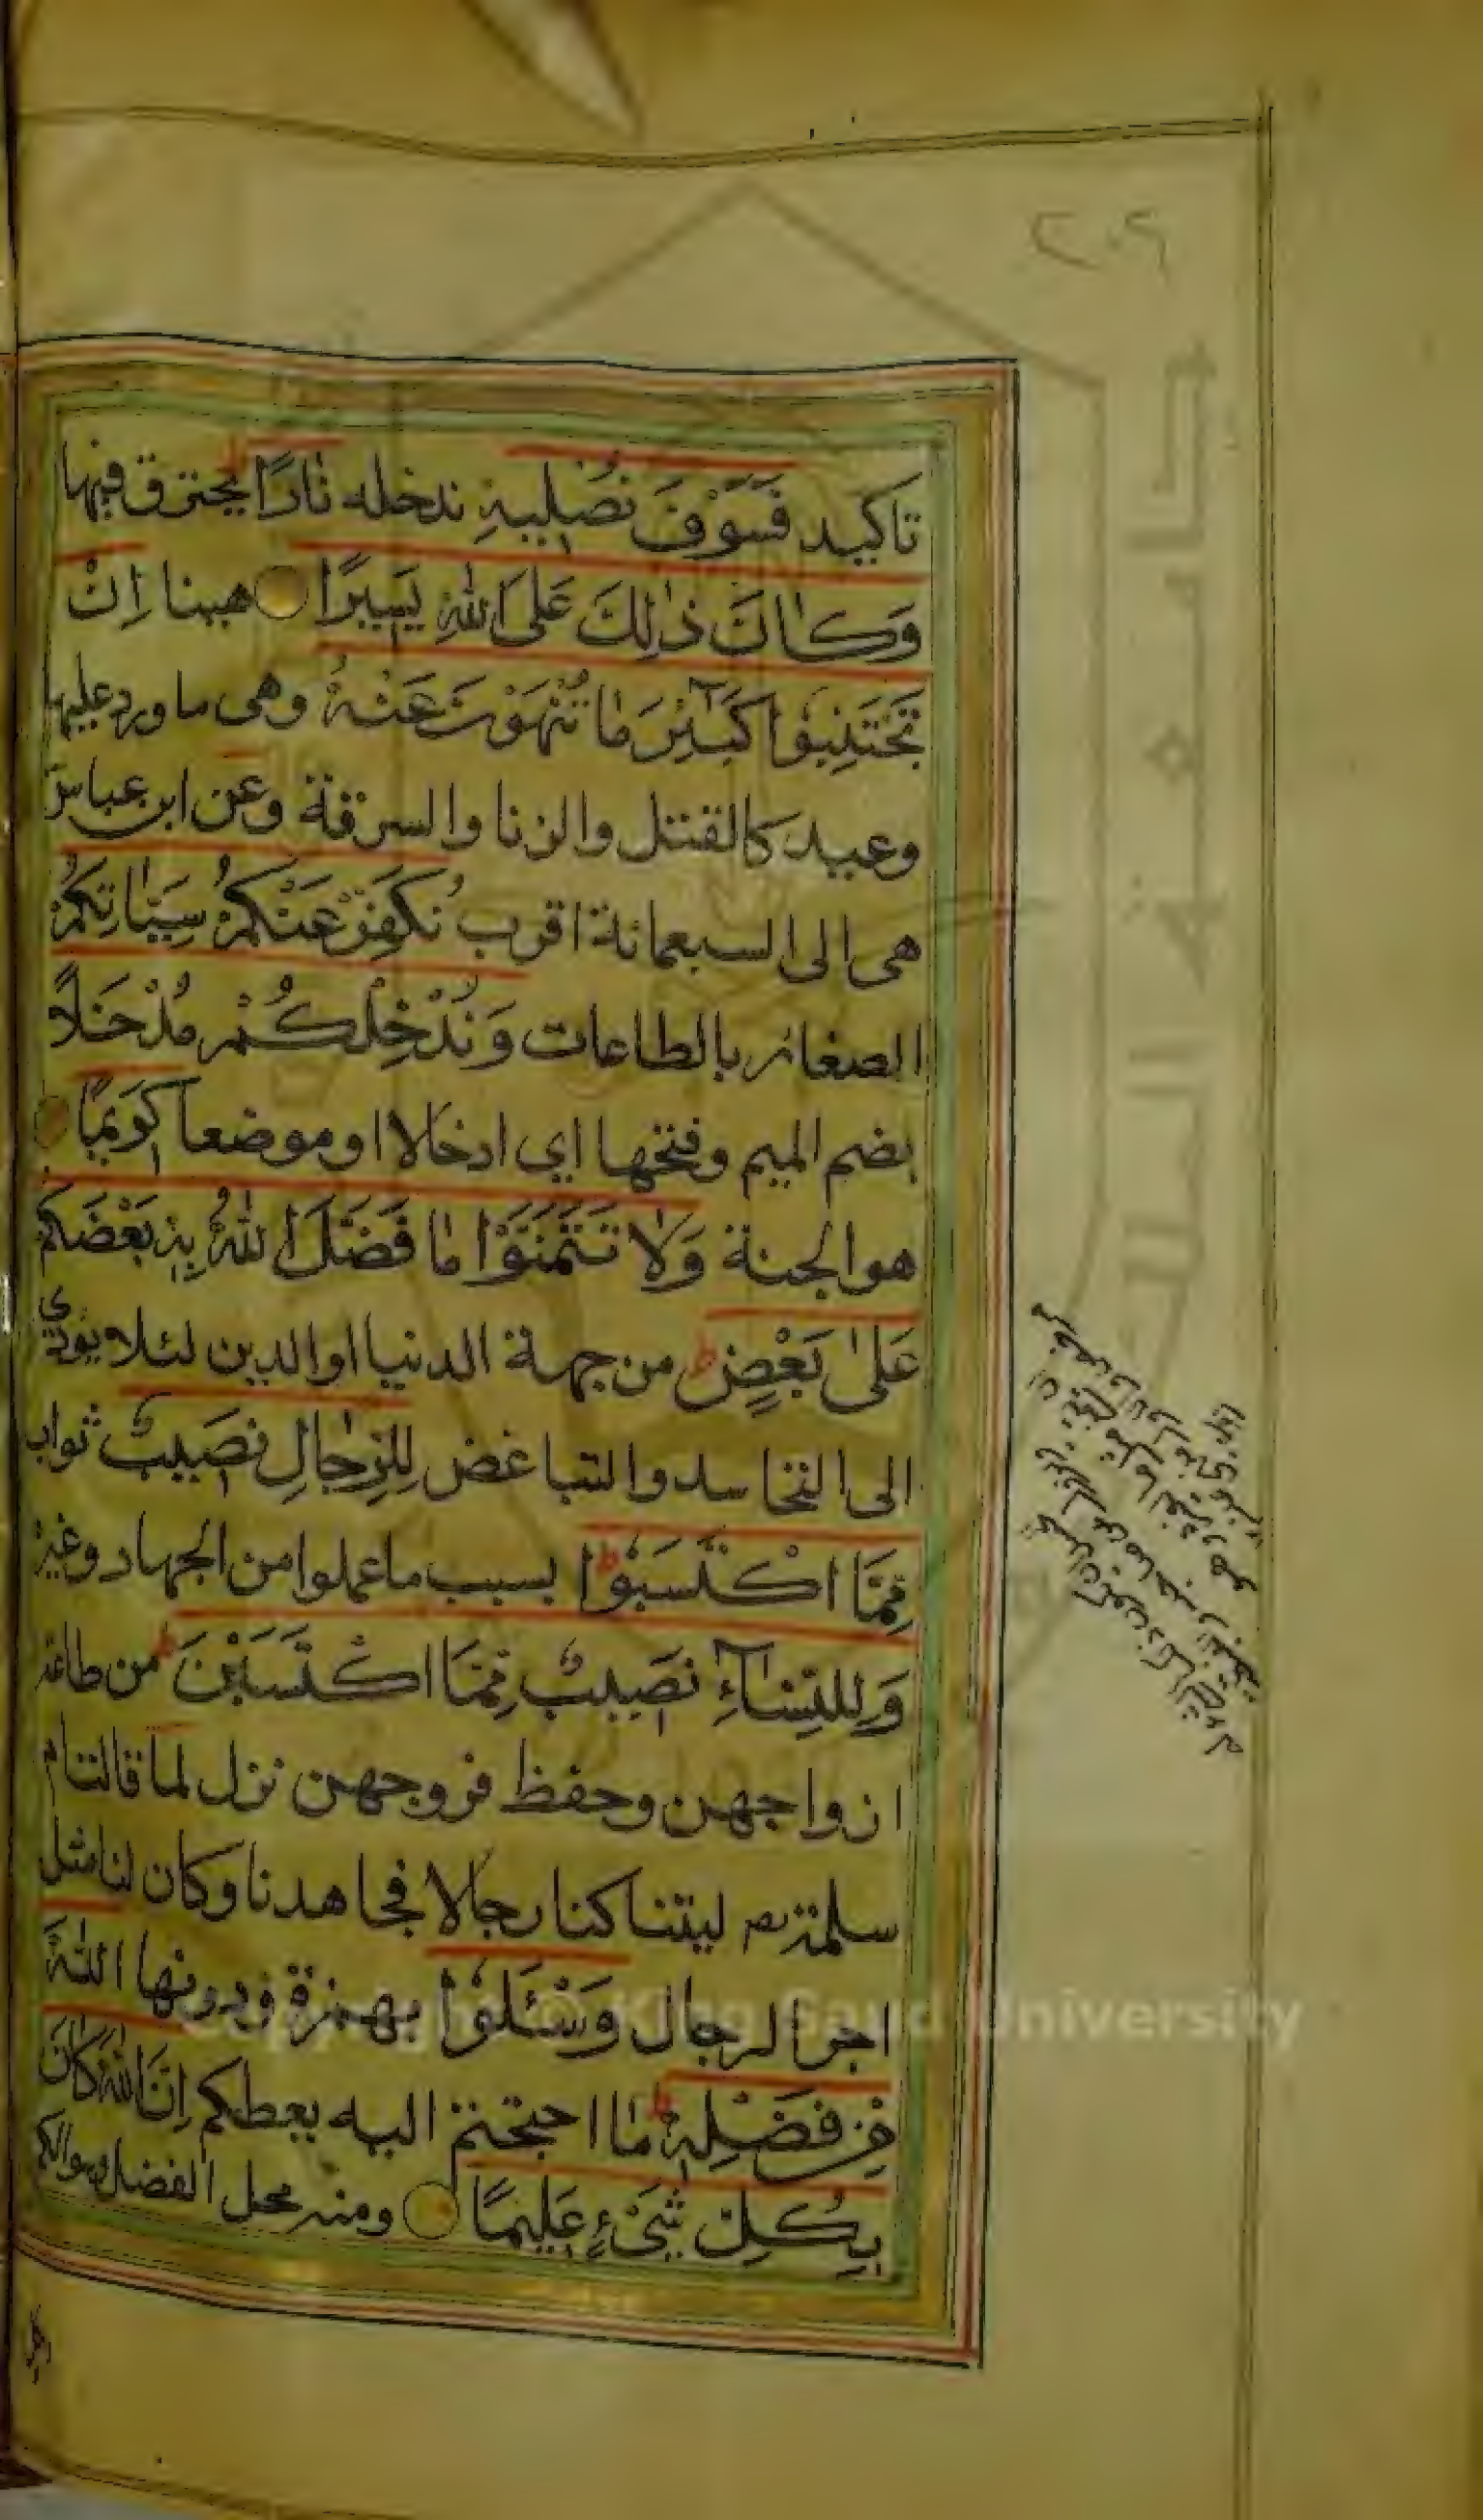 تاكيد فَسَوْفَ نُصْلِيهِ ندخله نَارًا يحترق فيها
وَكَانَ ذٰلِكَ عَلَى اللّٰهِ يَسِيرًا هينا اِنْ
تَجْتَنِبُوا كَبَآئِرَ مَا تُنْهَوْنَ عَنْهُ وهى ما ورد عليها
وعيد كالقتل والزنا والسرقة وعن ابن عباس
هى الى السبعمائة اقرب نُكَفِّرْ عَنْكُمْ سَيِّئَاتِكُمْ
الصغائر بالطاعات وَنُدْخِلْكُمْ مُدْخَلًا
بضم الميم وفتحها اي ادخالا او موضعا كَرِيمًا
هو الجنة وَلَا تَتَمَنَّوْا مَا فَضَّلَ اللّٰهُ بِهِ بَعْضَكُمْ
عَلٰى بَعْضٍ ط من جهة الدنيا او الدين لئلا يودي
الى التحاسد والتباغض لِلرِّجَالِ نَصِيبٌ ثواب
مِمَّا اكْتَسَبُوا ط بسبب ما عملوا من الجهاد وغيره
وَلِلنِّسَآءِ نَصِيبٌ مِمَّا اكْتَسَبْنَ ط من طاعة
ازواجهن وحفظ فروجهن نزل لما قالت ام
سلمة ليتنا كنا رجالا فجاهدنا وكان لنا مثل
اجر الرجال وَسْئَلُوا بهمزة ودونها اللّٰهَ
مِنْ فَضْلِهِ ط ما احتجتم اليه يعطكم اِنَّ اللّٰهَ كَانَ
بِكُلِّ شَيْءٍ عَلِيمًا ومنه محل الفضل وسوالكم
Copyright © King Saud University